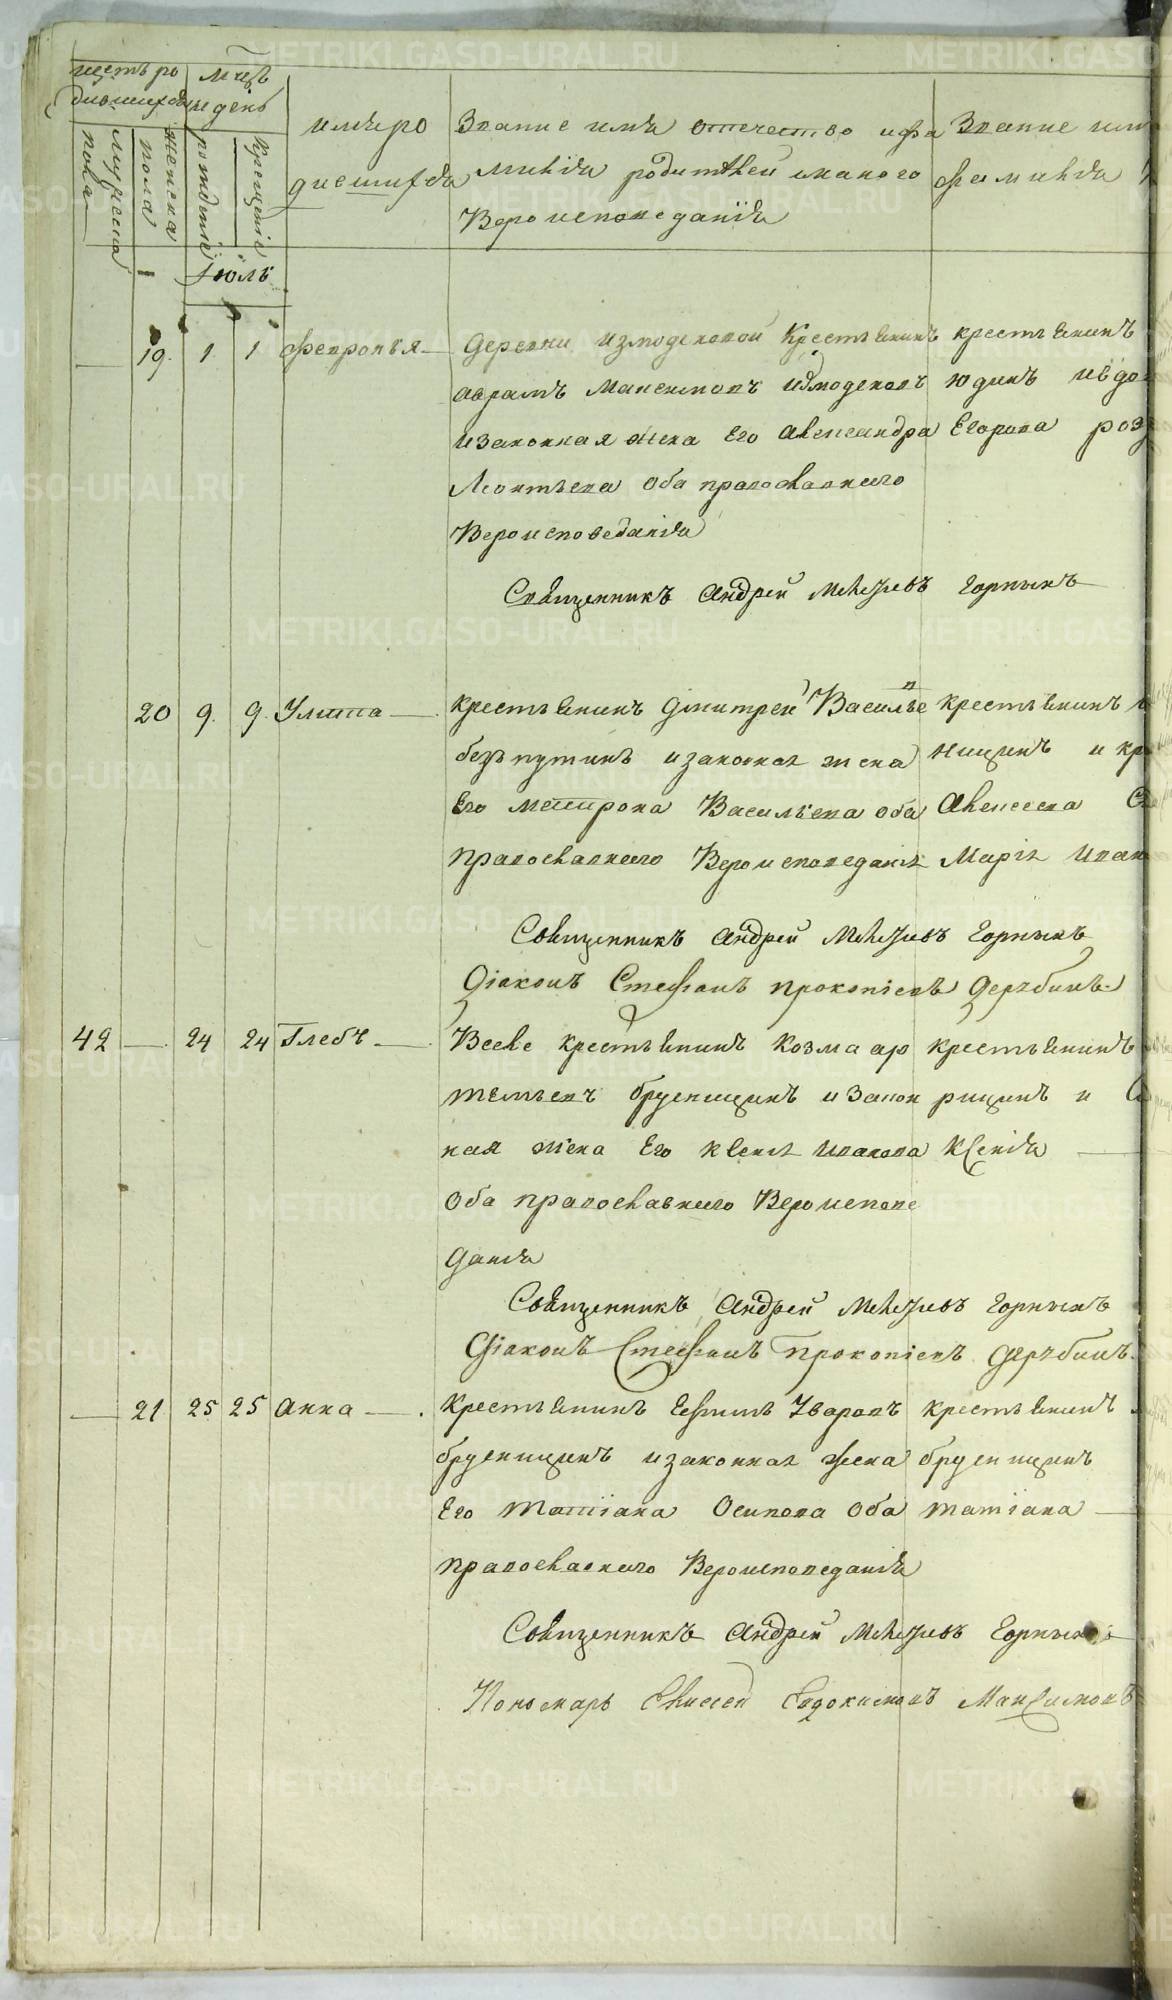 щетъ ро
дившихся
мцъ
и день
имя ро
дившихся
Звание имя отечество ифа
милия родителей икакого
Вероисповедания
Звание имя
фамилия
мужеска
пола
женска
пола
рождение
крещение
Июль
19. 1 1 Февронья
Деревни Измоденовой Крестьянинъ
аврамъ Максимовъ Измоденовъ
изаконная жена Его Александра
Леонтьева Оба православнаго
Вероисповедания
крестьянинъ
юдинъ
Егорова
Священникъ Андрей Горныхъ
20 9. 9. Улита
крестьянинъ Дмитрей Василье
безъпутинъ изаконная жена
Его матрона Васильева оба
православнаго Вероисповедания
крестьянинъ
ницинъ и
Алексеева
Мария
Священникъ Андрей Горныхъ
Диаконъ Стефанъ прокопиевъ Дерябинъ
42 24 24 Глебъ
Всеве крестьянинъ Козма ар
темьевъ брусницинъ изакон
ная жена Его ксения иванова
Оба православнаго Вероиспове
дания
крестьянинъ
рицинъ и
Ксения
Священникъ Андрей Горныхъ
Диаконъ Стефанъ прокопиевъ Дерябинъ
21 25 25 Анна
крестьянинъ Ефимъ Уваровъ
брусницинъ изаконная жена
Его татиана Осипова Оба
православнаго Вероисповедания
крестьянинъ
брусницинъ
татиана
Священникъ Андрей Горныхъ
Пономарь Елисей Евдокимовъ Максимовъ
METRIKI.GASO-URAL.RU